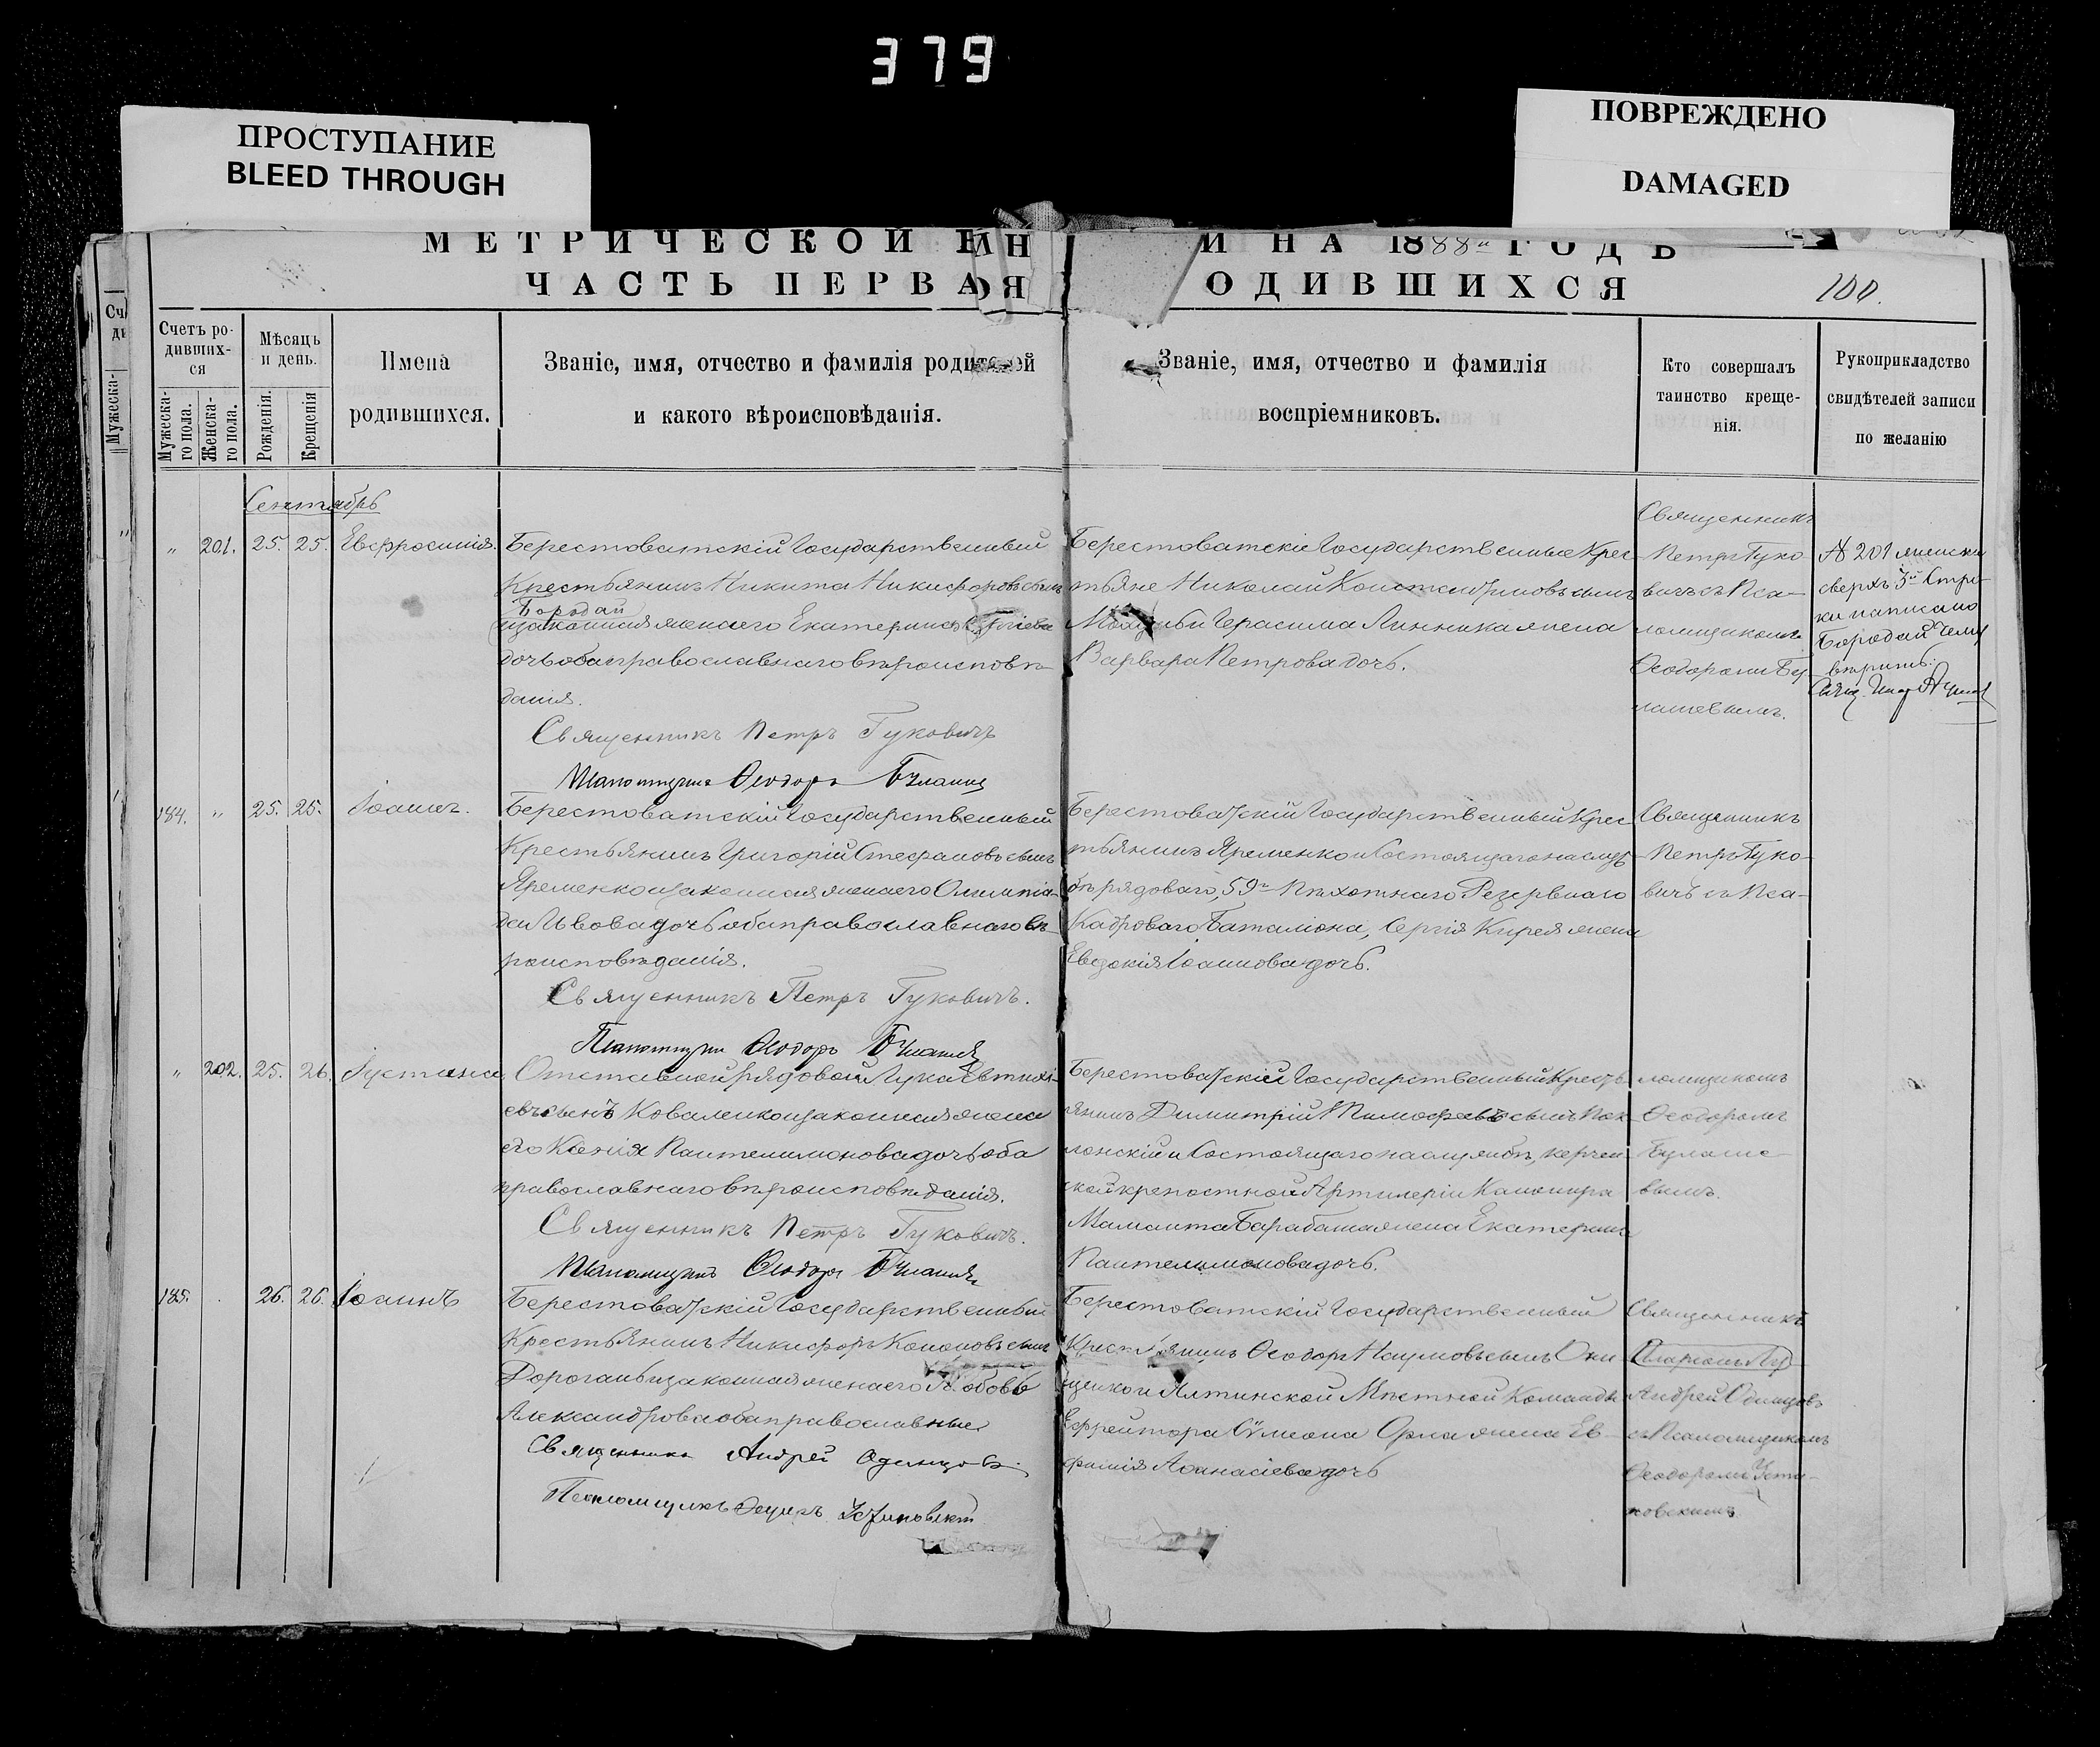 379
ПРОСТУПАНИЕ
BLEED THROUGH
ПОВРЕЖДЕНО
DAMAGED
МЕТРИЧЕСКОЙ КН
И НА 1888й ГОДЪ
ЧАСТЬ ПЕРВАЯ
ОДИВШИХСЯ
100.
Счетъ ро-
дивших-
ся
Мужеска-
го пола.
Женска-
го пола.
Мѣсяцъ
и день.
Рожденія.
Крещенія
Имена
родившихся.
Званіе, имя, отчество и фамилія родителей
и какого вѣроисповѣданія.
Званіе, имя, отчество и фамилія
воспріемниковъ.
Кто совершалъ
таинство креще-
нія.
Рукоприкладство
свидѣтелей записи
по желанію
Сентябрь
" 201. 25. 25. Евфросинія.
Берестоватскій Государственный
Крестьянинъ Никита Никифоровъ сынъ
Бородай
и законная жена его Екатерина
дочь оба православнаго вѣроисповѣ-
данія.
Священникъ Петръ Гуковичъ
Псаломщикъ Ѳеодоръ
Берестоватскіе Государственные Крес-
тьяне Николай Константиновъ сынъ
и Герасима Линника жена
Варвара Петрова дочь.
Священникъ
Петръ Гуко
вичъ съ Пса-
ломщикомъ
Ѳеодоромъ Бу-
лашевымъ.
№ 201 женска
сверхъ 3й Стро-
ки написано
Бородай чему
вѣрить.
184. " 25. 25. Іоаннъ.
Берестоватскій Государственный
Крестьянинъ Григорій Стефановъ сынъ
Яременко и законная жена его Олимпіа-
да Львова дочь оба православнаго вѣ-
роисповѣданія.
Священникъ Петръ Гуковичъ.
Псаломщикъ Ѳеодоръ
Берестоватскій Государственный Крес
тьянинъ Яременко и Состоящаго на служ
бѣ рядоваго, 59го Пѣхотнаго Резервнаго
Кадроваго Баталіона, Сергія Кирея жена
Евдокія Іоаннова дочь.
Священникъ
Петръ Гуко-
вичъ съ Пса-
" 202. 25. 26. Іустина
Отставной рядовой Лука Евтихі-
евъ сынъ Коваленко и законная жена
его Ксенія Пантелимонова дочь оба
православнаго вѣроисповѣданія.
Священникъ Петръ Гуковичъ.
Псаломщикъ Ѳеодоръ
Берестоватскій Государственный Кресть
янинъ Димитрій Тимофеевъ сынъ Пок
лонскій и Состоящаго на службѣ, керчен
ской крепостной Артилеріи Канонира
Маманта Барабаша жена Екатерина
Пантелимонова дочь.
ломщикомъ
Ѳеодоромъ
Булаше
вымъ.
185. 26. 26. Іоаннъ
Берестоватскій Государственный
Крестьянинъ Никифоръ Кононовъ сынъ
Дорогань и законная жена его Любовь
Александрова оба православные
Священникъ Андрей Одинцовъ
Псаломщикъ Устиновскій
Берестоватскій Государственный
Крестьянинъ Ѳеодоръ Наумовъ сынъ Они
щенко и Ялтинской Мѣстной Команды
Ефрейтора Сѵмеона Орла жена Ев
фимія Аѳанасіева дочь
Священникъ
Андрей Одинцовъ
съ Псаломщикомъ
Ѳеодоромъ Усти-
новскимъ